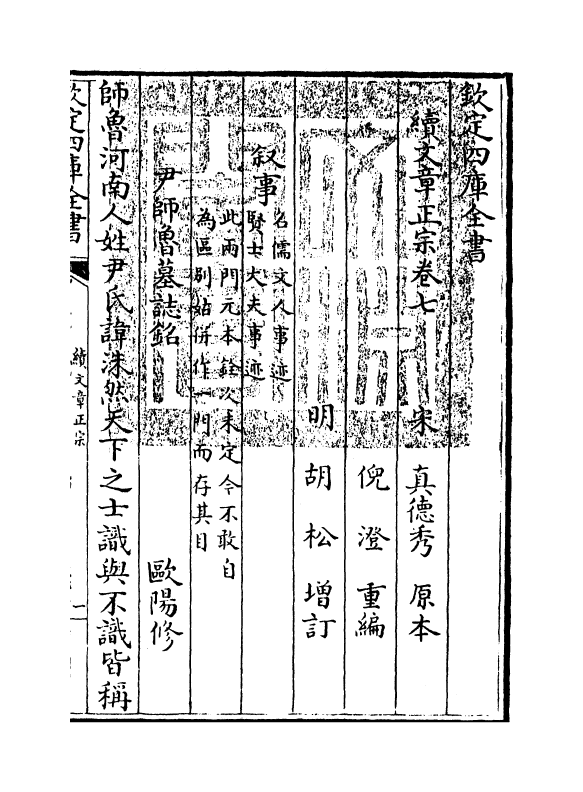 欽定四庫全書
續文章正宗卷七
宋 真德秀 原本
倪澄 重編
明 胡松 增訂
叙事
名儒文人事迹
賢士大夫事迹
此兩門元本銓次未定今不敢自
為區别姑併作一門而存其目
尹師魯墓誌銘 歐陽修
師魯河南人姓尹氏諱洙然天下之士識與不識皆稱
欽定四庫全書
續文章正宗
一